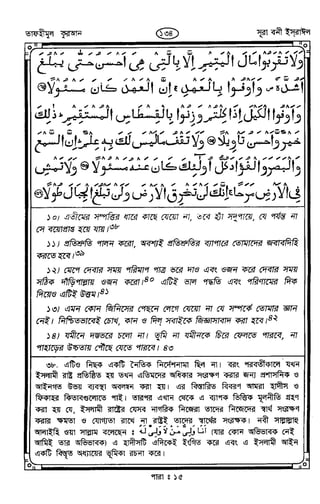 তাফহীমুল কুরআন
১৩৪
সূরা বনী ইসরাঈল
وَلَا تَقْرَبُوا مَالَ الْيَتِيْمِ اِلَّا بِالَّتِىْ هِىَ اَحْسَنُ حَتّٰى يَبْلُغَ
اَشُدَّهٗ ۪ وَاَوْفُوْا بِالْعَهْدِ ۚ اِنَّ الْعَهْدَ كَانَ مَسْئُوْلًا ۝
وَاَوْفُوا الْكَيْلَ اِذَا كِلْتُمْ وَزِنُوْا بِالْقِسْطَاسِ الْمُسْتَقِيْمِ ؕ ذٰلِكَ
خَيْرٌ وَّاَحْسَنُ تَاْوِيْلًا ۝ وَلَا تَقْفُ مَا لَيْسَ لَكَ بِهٖ عِلْمٌ ؕ اِنَّ السَّمْعَ
وَالْبَصَرَ وَالْفُؤَادَ كُلُّ اُولٰٓئِكَ كَانَ عَنْهُ مَسْئُوْلًا ۝ وَلَا تَمْشِ
فِى الْاَرْضِ مَرَحًا ۚ اِنَّكَ لَنْ تَخْرِقَ الْاَرْضَ وَلَنْ تَبْلُغَ الْجِبَالَ طُوْلًا ۝
১০। এতীমের সম্পত্তির ধারে কাছে যেয়ো না, তবে হাঁ সদুপায়ে, যে পর্যন্ত না
সে বয়োপ্রাপ্ত হয়ে যায়।৩৮
১১। প্রতিশ্রুতি পালন করো, অবশ্যই প্রতিশ্রুতির ব্যাপারে তোমাদের জবাবদিহি
করতে হবে।৩৯
১২। মেপে দেবার সময় পরিমাপ পাত্র ভরে দাও এবং ওজন করে দেবার সময়
সঠিক দাঁড়িপাল্লায় ওজন করো।৪০ এটিই ভাল পদ্ধতি এবং পরিণামের দিক
দিয়েও এটিই উত্তম।৪১
১৩। এমন কোন জিনিসের পেছনে লেগে যেয়ো না যে সম্পর্কে তোমার জ্ঞান
নেই। নিশ্চিতভাবেই চোখ, কান ও দিল্ সবাইকে জিজ্ঞাসাবাদ করা হবে।৪২
১৪। যমীনে দম্ভভরে চলো না। তুমি না যমীনকে চিরে ফেলতে পারবে, না
পাহাড়ের উচ্চতায় পৌঁছে যেতে পারবে। ৪৩
৩৮. এটিও নিছক একটি নৈতিক নির্দেশনামা ছিল না। বরং পরবর্তীকালে যখন
ইসলামী রাষ্ট্র প্রতিষ্ঠিত হয় তখন এতিমদের অধিকার সংরক্ষণ করার জন্য প্রশাসনিক ও
আইনগত উভয় ব্যবস্থা অবলম্বন করা হয়। এর বিস্তারিত বিবরণ আমরা হাদীস ও
ফিকাহর কিতাবগুলোতে পাই। তারপর এখান থেকে এ ব্যাপক ভিত্তিক মূলনীতি গ্রহণ
করা হয় যে, ইসলামী রাষ্ট্রের যেসব নাগরিক নিজেরা তাদের নিজেদের স্বার্থ সংরক্ষণ
করার ক্ষমতা ও যোগ্যতা রাখে না রাষ্ট্রই তাদের স্বার্থের সংরক্ষক। নবী সাল্লাল্লাহু
আলাইহি ওয়া সাল্লাম বলেছেন : انا ولي من لا ولي له (যার কোন অভিভাবক নেই
আমিই তার অভিভাবক) এ হাদীসটি এদিকেই ইংগিত করে এবং এ ইসলামী আইন
একটি বিস্তৃত অধ্যায়ের ভূমিকা রচনা করে।
পারা : ১৫